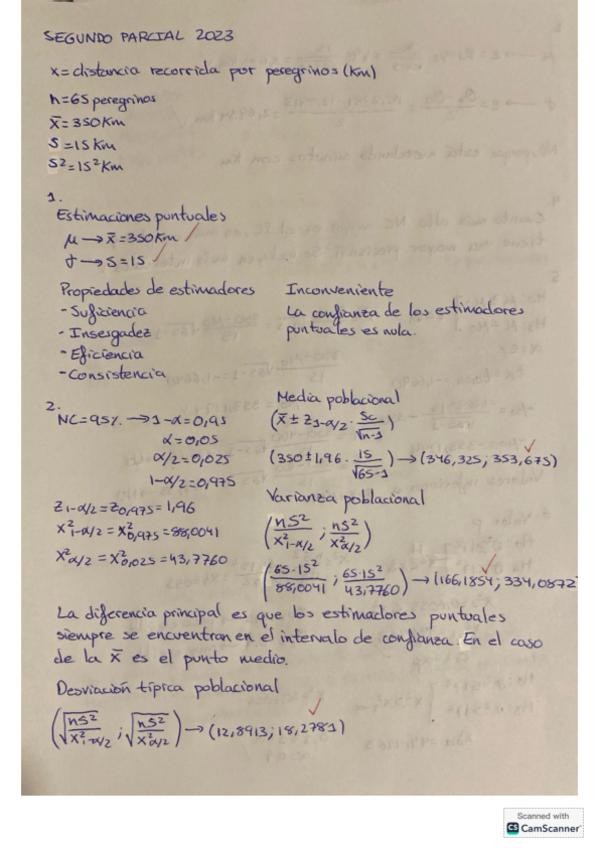 SEGUNDO PARCIAL 2023
x = distancia recorrida por peregrinos (km)
n = 65 peregrinos
x̄ = 350 Km
S = 15 Km
S² = 15² Km
1.
Estimaciones puntuales
μ → x̄ = 350 Km ✓
σ → S = 15 ✓
Propiedades de estimadores
- Suficiencia
- Insesgadez
- Eficiencia
- Consistencia
Inconveniente
La confianza de los estimadores
puntuales es nula.
2.
NC = 95% → 1-α = 0,95
α = 0,05
α/2 = 0,025
1-α/2 = 0,975
Z1-α/2 = Z0,975 = 1,96
X²1-α/2 = X²0,975 = 88,0041
X²α/2 = X²0,025 = 43,7760
Media poblacional
(x̄ ± Z1-α/2 · Sc/√n-1)
(350 ± 1,96 · 15/√65-1) → (346,325; 353,675) ✓
Varianza poblacional
(nS²/X²1-α/2 ; nS²/X²α/2)
(65·15²/88,0041 ; 65·15²/43,7760) → (166,1854; 334,0872 ✓
La diferencia principal es que los estimadores puntuales
siempre se encuentran en el intervalo de confianza. En el caso
de la x̄ es el punto medio.
Desviación típica poblacional
(√nS²/X²1-α/2 ; √nS²/X²α/2) → (12,8913; 18,2781) ✓
Scanned with
CS CamScanner